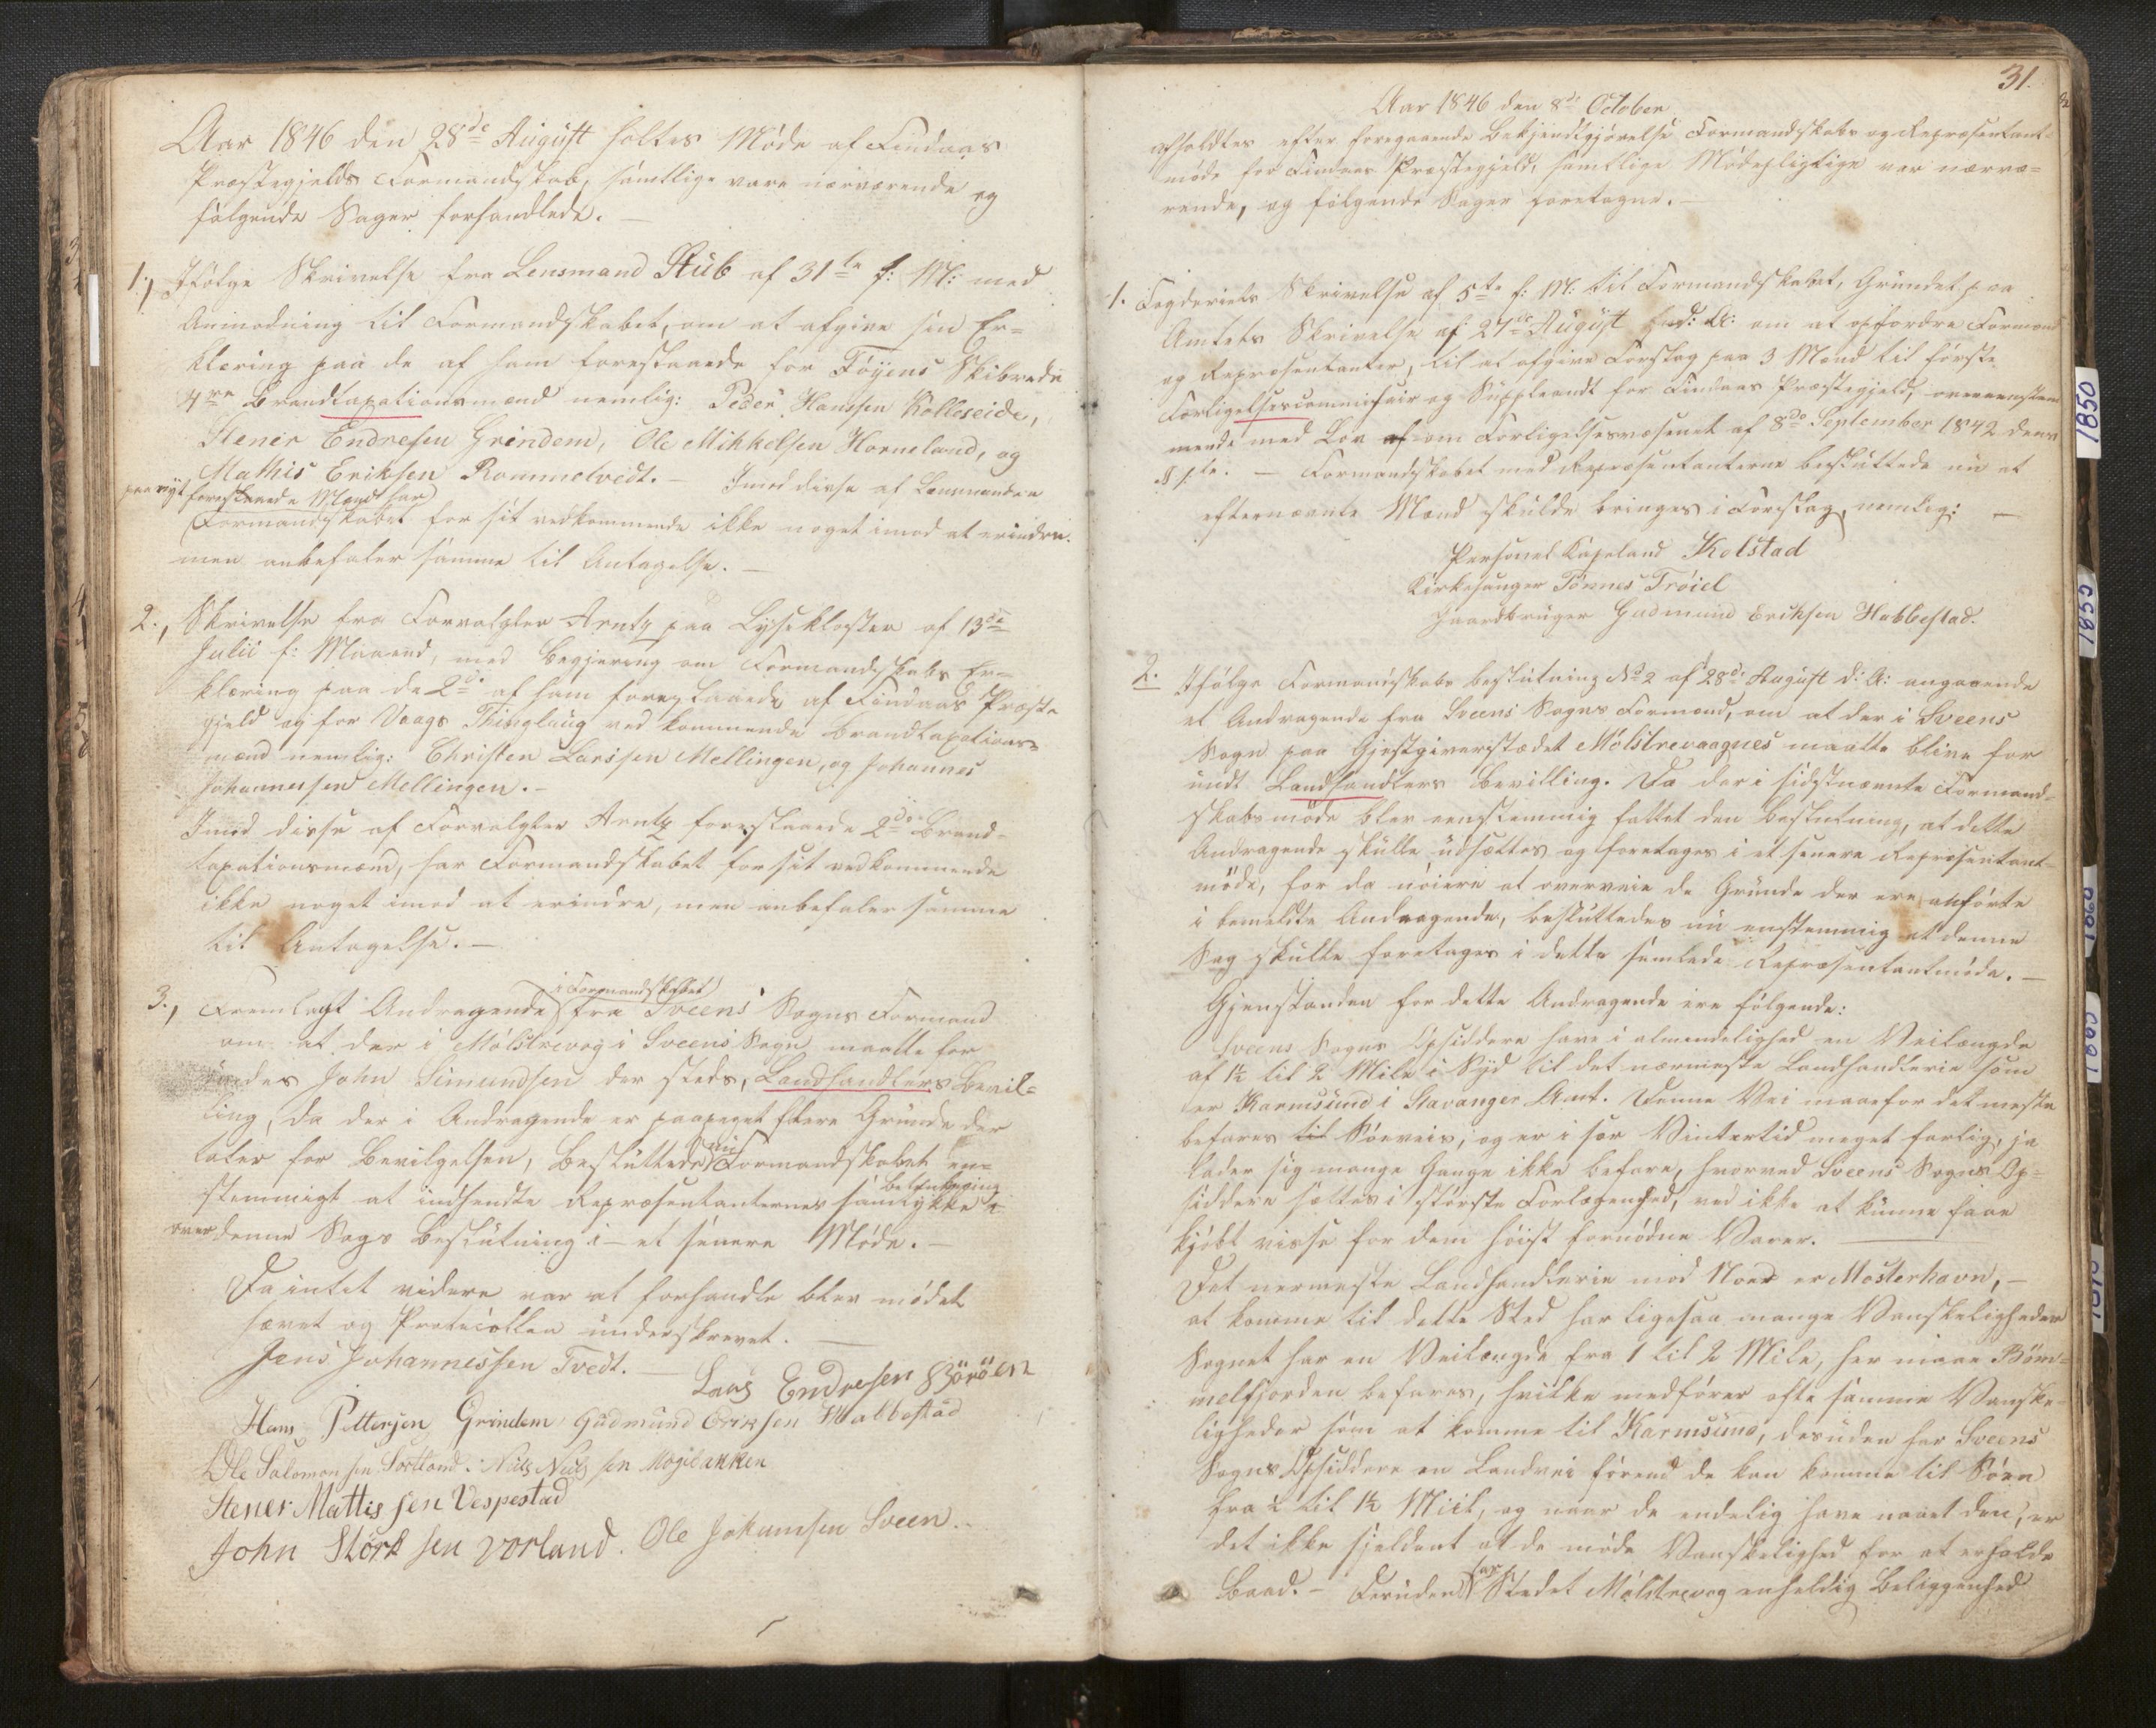 Aar 1846 den 28de August holtes Møde af Findaas
Præstegjelds Formandskab, samtlige vare nærværende og
følgende Sager forhandlede. —
1., Ifølge Skrivelse fra Lensmand Stub af 31te f: M: med
Anmodning til Formandskabet, om at afgive sin Er=
klæring paa de af ham foreslaaede for Føyens Skibrede
4re Brandtaxationsmænd nemlig: Peder Hanssen Kolleseide,
Stener Endresen Grindem, Ole Mikkelsen Horneland, og
Mathis Eriksen Rommetvedt. — Imod disse af Lensmanden
paa nyt foreslaaede Mænd har
Formandskabet for sit vedkommende ikke noget imod at erindre.
men anbefaler samme til Antagelse. —
2., Skrivelse fra Forvalgter Arntz paa Lysekloster af 13de
Julii f: Maaned, med Begjering om Formandskabs Er=
klæring paa de 2de af ham foreslaaede af Findaas Præste
gjeld og for Vaags Thinglaug vedkommende Brandtaxations=
mænd nemlig: Christen Larssen Mellingen, og Johannes
Johannessen Mellingen. —
Imod disse af Forvalgter Arntz foreslaaede 2de Brand=
taxationsmænd, har Formandskabet for sit vedkommende
ikke noget imod at erindre, men anbefaler samme
til Antagelse. —
i Formandskabet
3., Fremlagt Andragende fra Sveens Sogns Formænd
om at der i Mølstrevog i Sveens Sogn maatte for
undes John Simundsen der steds, Landhandlers Bevil=
ling, da der i Andragende er paapeget flere Grunde der
taler for Bevilgelsen, Besluttede nu Formandskabet en=
stemmigt at indhendte Repræsentanternes samtykke
over denne Sags Beslutning i et senere Møde. —
Da intet videre var at forhandle blev mødet
hævet og Protocollen underskrevet. —
Jens Johannessen Tvedt. — Lars Endresen Børøen
Hans Pettersen Grindem Gudmund Eriksen Habbestad
Ole Salomonsen Sortland. Nils Nilssen Mogilakken
Stener Mattissen Vespestad
John Størksen Vorland. Ole Jokumsen Sveen.
31.
Aar 1846 den 8de October
afholdtes efter foregaaende Bekjendtgjørelse Formandskabs og Repræsentant=
møde for Findaas Præstegjeld, samtlige Mødepligtige var nærvæ=
rende, og følgende Sager foretagne. —
1. Fogderiets Skrivelse af 5te f: M: til Formandskabet, Grundet paa
Amtets Skrivelse af 27de August om at opfordre Formænd
og Repræsentanter, til at afgive Forslag paa 3 Mænd til første
Forligelsescommissair og Suppleandt for Findaas Præstegjeld, overeenstem
mende med Lov om Forligelsesvæsenet af 8de September 1842 dens
§ 1te. — Formandskabet med Repræsentanterne besluttede nu at
efternævnte Mænd skulde bringes i Forslag, nemlig: —
Personel Kapeland Kolstad
Kirkesanger Tønnes Trøiel
Gaardbruger Gudmund Eriksen Habbestad.
2. Ifølge Formandskabs beslutning No 2 af 28de August d: A: angaaende
et Andragende fra Sveens Sogns Formænd, om at der i Sveens
Sogn paa Gjestgiverstædet Mølstrevaagnes maatte blive for
undt Landhandlers Bevilling. Da der i sidstnævnte Formand=
skabsmøde blev eenstemmig fattet den Beslutning, at dette
Andragende skulle udsættes og foretages i et senere Repræsentant=
møde, for da nøiere at overveie de Grunde der ere anførte
i bemeldte Andragende, besluttedes nu enstemmig at denne
Sag skulle foretages i dette samlede Repræsentantmøde. —
Gjenstanden for dette Andragende ere følgende:
Sveens Sogns Opsiddere have i almendelighed en Veilængde
af 1½ til 2 Mile i Syd til det nærmeste Landhandlerie som
er Karmsund i Stavanger Amt. Denne Vei maae for det meste
befares til Søeveis, og er i sær Vintertid meget farlig, ja
lader sig mange Gange ikke befare, hvorved Sveens Sogns Op=
siddere sættes i største Forlegenhed, ved ikke at kunne faae
kjøbt visse for dem høist fornødne Varer. —
Det nermeste Landhandlerie mod Nord er Mosterhavn, —
at komme til dette Sted har ligesaa mange Vanskeligheder
Sognet har en Veilængde fra 1 til 2 Mile, her maae Bøm=
melfjorden befares, hvilke medfører ofte samme Vanske=
ligheder som at komme til Karmsund, desuden har Sveens
Sogns Opsiddere en Landvei førend de kan komme til Søen
fra ½ til 1½ Miil, og naar de endelig have naaet den, er
det ikke sjeldent at de møde Vanskelighed for at erholde
Baad. — Desuden har Stedet Mølstrevog en heldig Beliggenhed
1850
1855
1860
1865
1870